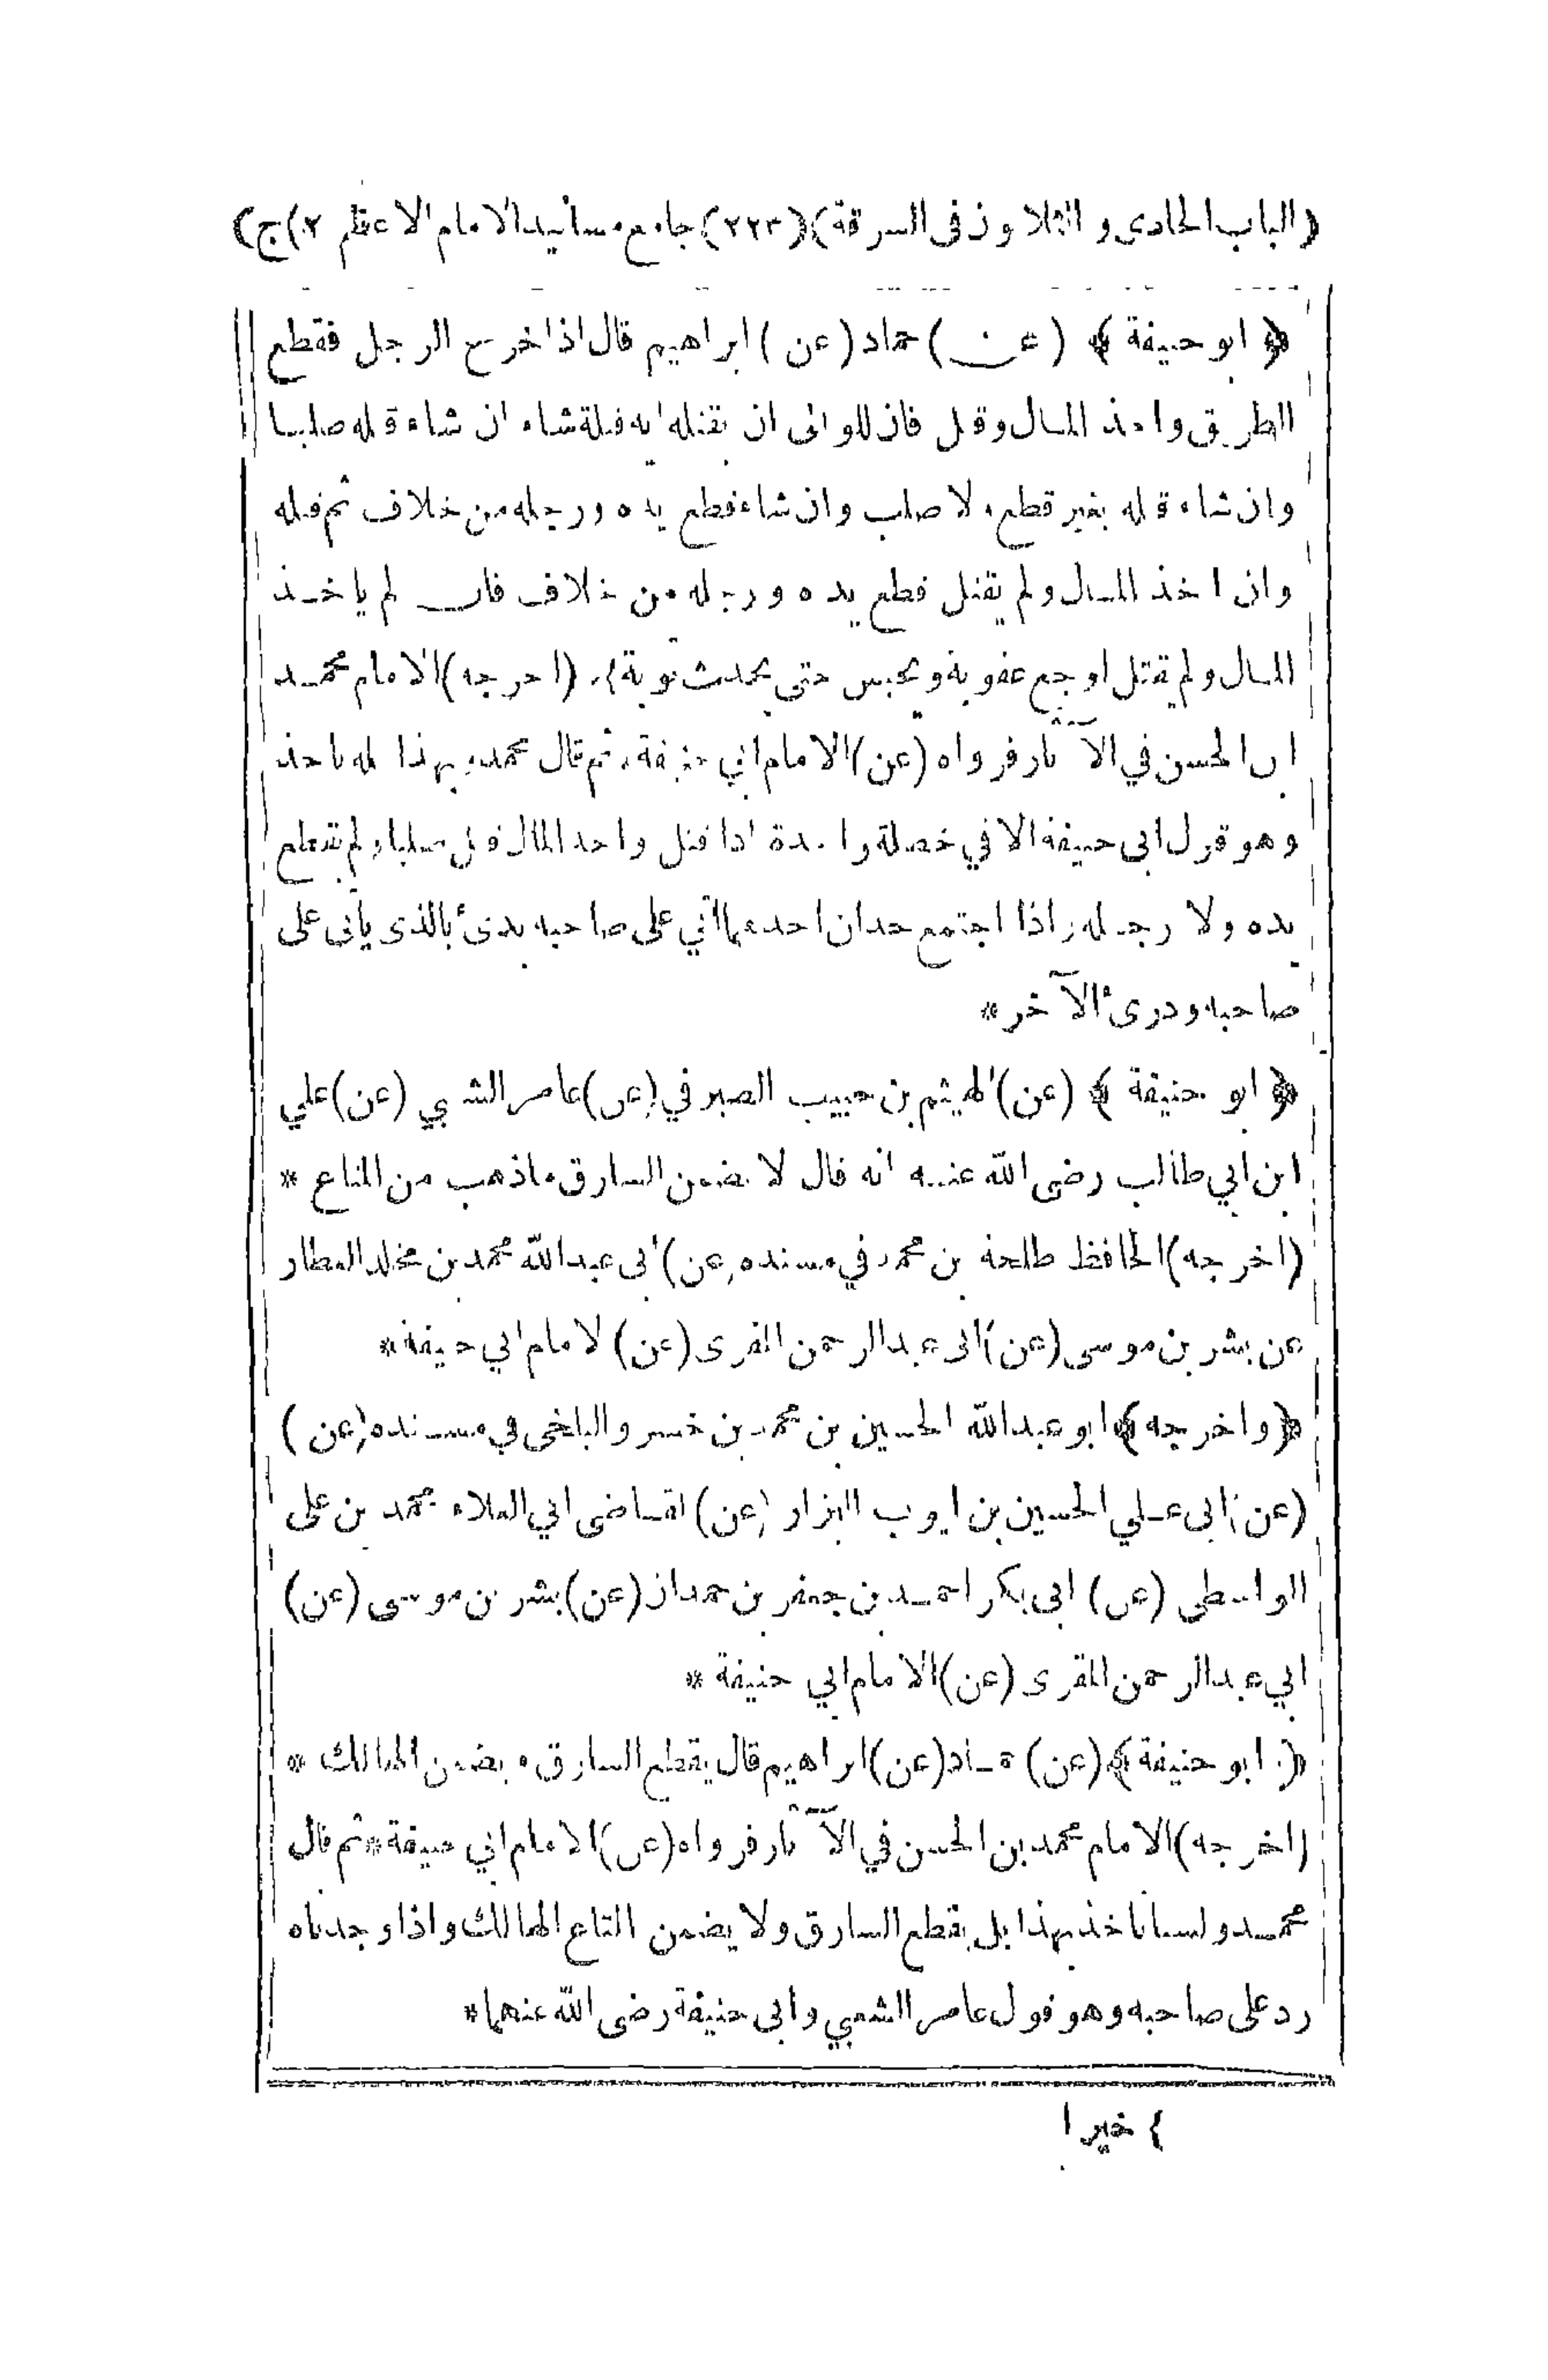 (الباب الحادى والثلاثون فى السرقة) (٢٢٣) جامع مسانيد الامام الاعظم ٢) ج)
﴿ ابو حنيفة ﴾ (عن) حماد (عن) ابراهيم قال اذا خرج الرجل فقطع
الطريق واخذ المال وقتل فان للوالى ان يقتله اية قتلة شاء ان شاء قتله صلبا
وان شاء قتله بغير قطع ولا صلب وان شاء قطع يده ورجله من خلاف ثم قتله
وان اخذ المال ولم يقتل قطع يده ورجله من خلاف فان لم ياخذ
المال ولم يقتل اوجع عقوبة ويحبس حتى يحدث توبة) (اخرجه) الامام محمد
ابن الحسن في الآثار فرواه (عن) الامام ابي حنيفة ثم قال محمد وبهذا كله ناخذ
وهو قول ابى حنيفة الا في خصلة واحدة اذا قتل واخذ المال قتل صلبا ولم تقطع
يده ولا رجله واذا اجتمع حدان احدهما اتي على صاحبه بدئ بالذى يأتى على
صاحبه ودرئ الآخر *
﴿ ابو حنيفة ﴾ (عن) الهيثم بن حبيب الصيرفي (عن) عامر الشعبي (عن) علي
ابن ابي طالب رضى الله عنه انه قال لا يضمن السارق ما ذهب من المتاع *
(اخرجه) الحافظ طلحة بن محمد في مسنده (عن) ابى عبدالله محمد بن مخلد العطار
عن بشر بن موسى (عن) ابى عبدالرحمن المقرى (عن) الامام ابي حنيفة *
﴿واخرجه﴾ ابو عبدالله الحسين بن محمد بن خسرو البلخى في مسنده (عن)
(عن) ابى علي الحسين بن ايوب البزار (عن) القاضى ابي العلاء محمد بن على
الواسطى (عن) ابى بكر احمد بن جعفر بن حمدان (عن) بشر بن موسى (عن)
ابي عبدالرحمن المقرى (عن) الامام ابي حنيفة *
﴿ابو حنيفة﴾ (عن) حماد (عن) ابراهيم قال يقطع السارق ويضمن الهالك *
(اخرجه) الامام محمد بن الحسن في الآثار فرواه (عن) الامام ابي حنيفة * ثم قال
محمد ولسنا ناخذ بهذا بل يقطع السارق ولا يضمن المتاع الهالك واذا وجدناه
رد على صاحبه وهو قول عامر الشعبي وابى حنيفة رضى الله عنهما *
} خيرا